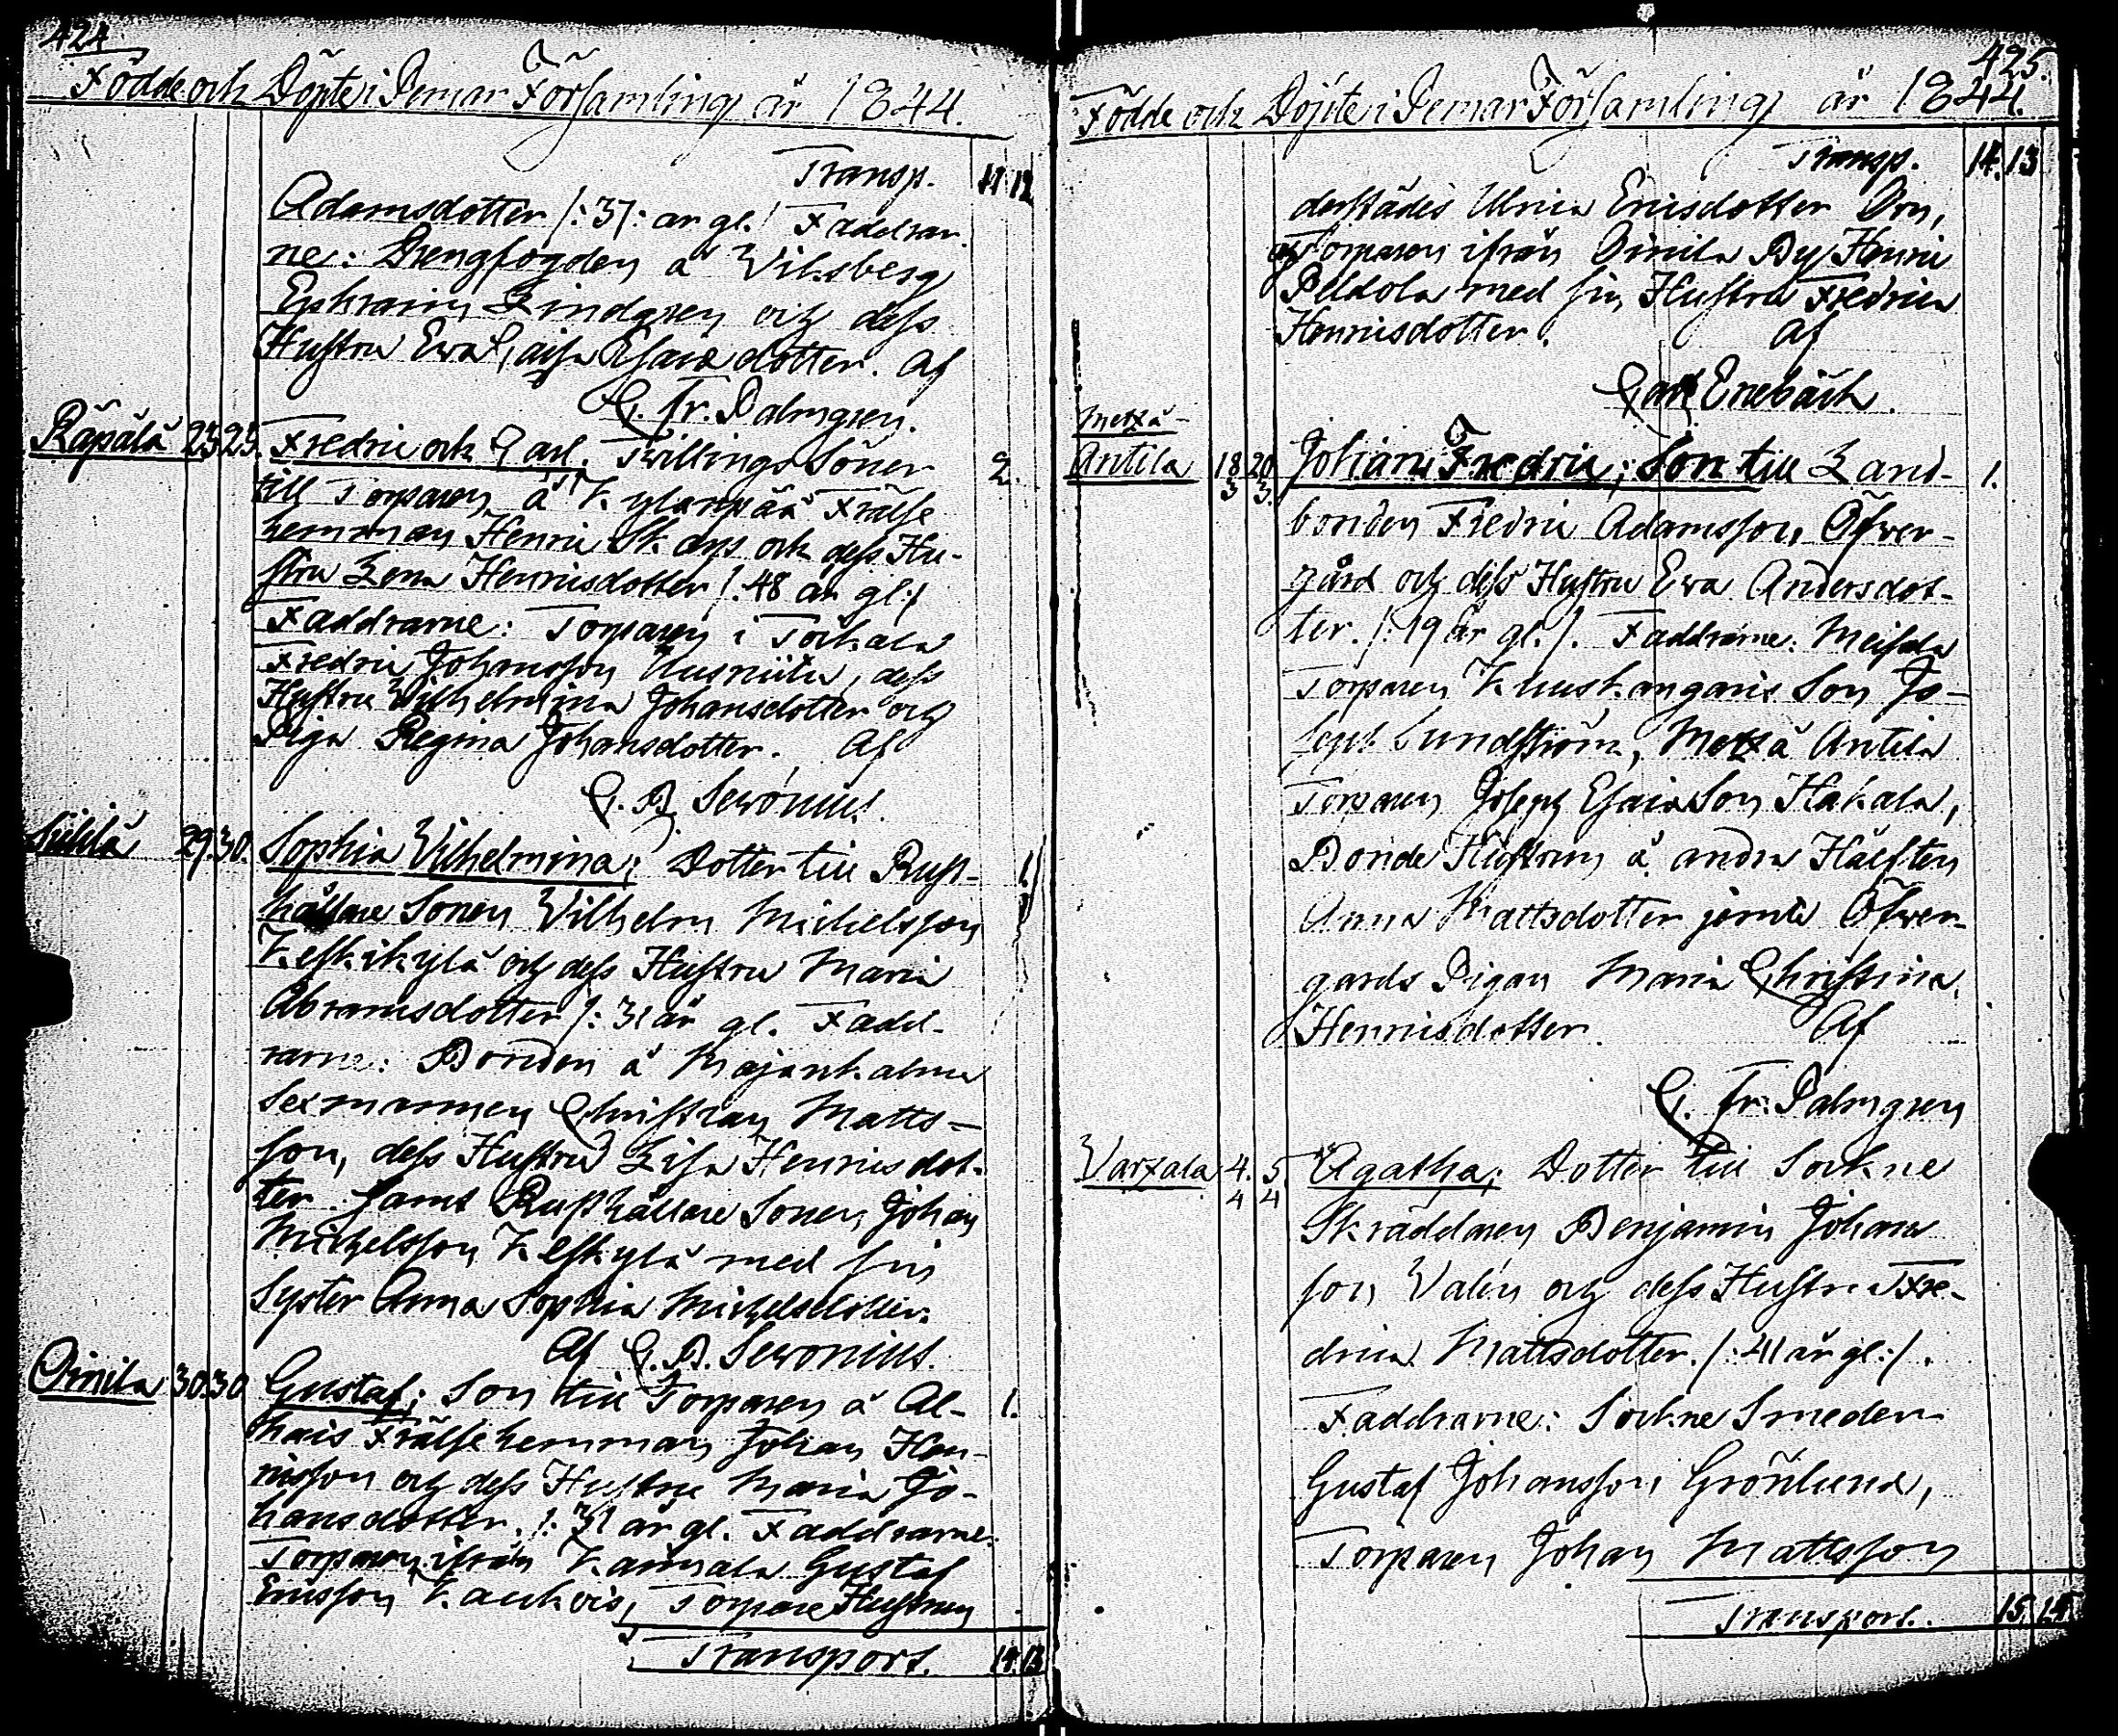 424
Födde och Döpte i Pemar Församling år 1844.
Transp. 11 12
Adamsdotter /: 37: år gl. / Faddrar
ne: Drengfogden å Wiksberg
Ephraim Lindgren och dess
Hustru Ewa Caisa Esaiæ dotter. Af
C. Fr. Palmgren.
Räpälä 23 23. Fredric och Carl. Twillings Söner 2.
till Torparen å Kylänpää Frälse
hemman Henric Skags och dess Hu-
stru Lena Henricsdotter /. 48 år gl:/
Faddrarne: Torparen i Tockala
Fredric Johansson Uusniitu, dess
Hustru Wilhelmina Johansdotter och
Piga Regina Johansdotter. Af
C. B. Serónius.
29. 30. Sophia Wilhelmina; Dotter till Rust- 1.
hållare Sonen Wilhelm Michelsson
Keskikylä och dess Hustru Maria
Abramsdotter /: 31 år gl. Fadd-
rarne: Bonden å Majankalma
Sexmannen Christian Matts-
son, dess Hustru Lisa Henricsdot-
ter. samt Rusthållare Sonen Johan
Michelsson Keskylä med sin
Syster Anna Sophia Michelsdotter.
Af C. B. Seronius.
Oinila 30. 30 Gustaf; Son till Torparen å Al- 1.
hais Frälse hemman Johan Hen-
ricsson och dess Hustru Maria Jo-
hansdotter. /: 31 år gl. Faddrarne.
Torparen ifrån Karinala Gustaf
Ericsson Kaukois, Torpare Hustrun
Transport. 14. 13
425.
Födde och Döpte i Pemar Församling år 1844.
Transp. 14. 13
derstädes Ulrica Ericsdotter
och Torparen ifrån Oinila By Henric
Peldola med sin Hustru Fredrica
Henricsdotter. Af
Carl Enebäck.
Metzä-
Antila 18/3 20/3. Johan Fredric; Son till Land- 1.
bonden Fredric Adamsson Öfver-
gård och dess Hustru Ewa Andersdot-
ter. /: 19 år gl. /. Faddrarne: Meisala
Torparen Kuuskangaris Son Jo-
seph Sundström, Metzä Antila
Torparen Joseph Esaiæ Son Hakala,
Bonde Hustrun å andra Hälften
Anna Mattsdotter jemte Öfwer-
gårds Pigan Maria Christina
Henricsdotter. Af
C. Fr. Palmgren
Warxala 4./4 5./4 Agatha; Dotter till Sockne
Skräddaren Benjamin Johans
son Walin och dess Hustru Fre-
drica Mattsdotter. /: 41 år gl:/.
Faddrarne: Sockne Smeden
Gustaf Johansson Grönlund,
Torparen Johan Mattsson
Transport. 15. 14